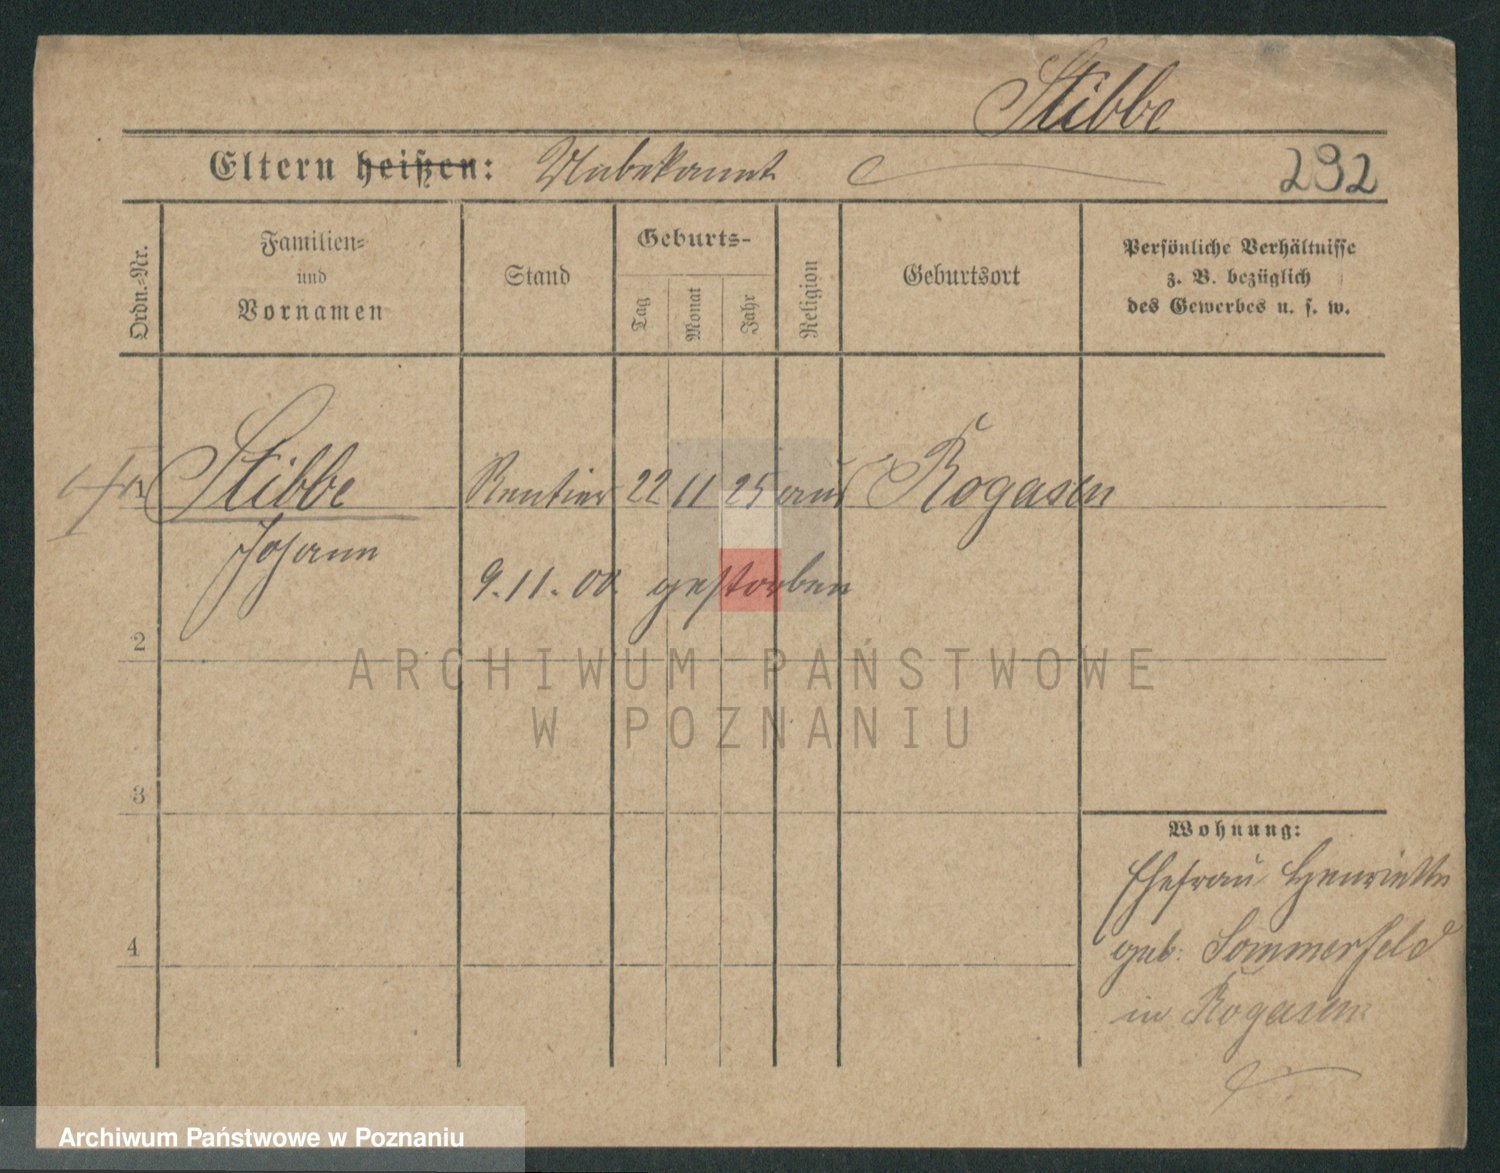 Stibbe
Eltern heißen: Unbekannt
232
Ordn.-Nr.
Familien=
und
Vornamen
Stand
Geburts=
Tag
Monat
Jahr
Religion
Geburtsort
Persönliche Verhältnisse
z. B. bezüglich
des Gewerbes u. s. w.
Stibbe Rentier 22 11 25 aus Rogasen
Johann
9.11.00. gestorben
2
ARCHIWUM PAŃSTWOWE
W POZNANIU
3
Wohnung:
Ehefrau Henriette
4
geb. Sommerfeld
in Rogasen
Archiwum Państwowe w Poznaniu